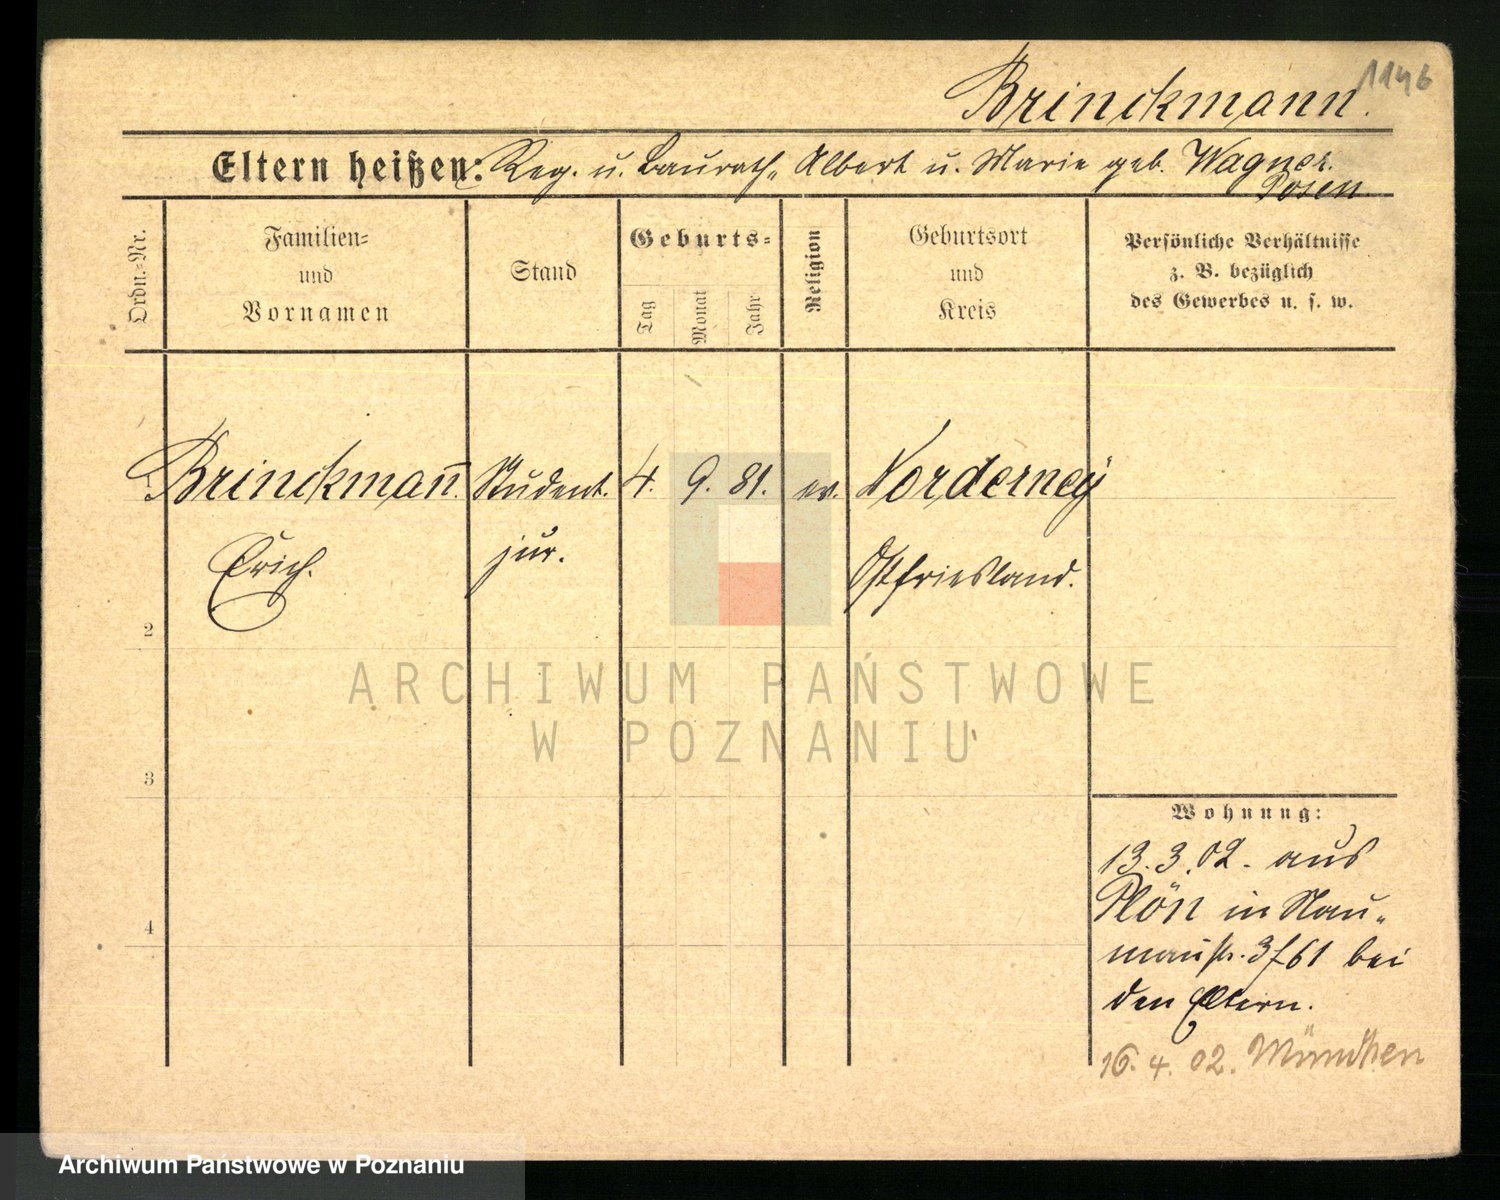 1146
Brinckmann.
Eltern heißen: Reg. u. Baurath, Albert u. Marie geb. Wagner.
Posen
Ordn.=Nr.
Familien=
und
Vornamen
Stand
Geburts=
Tag
Monat
Jahr
Religion
Geburtsort
und
Kreis
Persönliche Verhältnisse
z. B. bezüglich
des Gewerbes u. s. w.
Brinckmann̄. Student. 4. 9. 81. ev. Norderney
Erich. jur. Ostfriesland.
2
3
4
Wohnung:
13.3.02. aus
Plön in Nau-
manstr. 3 f 61 bei
den Eltern.
16. 4. 02. München
ARCHIWUM PAŃSTWOWE
W POZNANIU
Archiwum Państwowe w Poznaniu